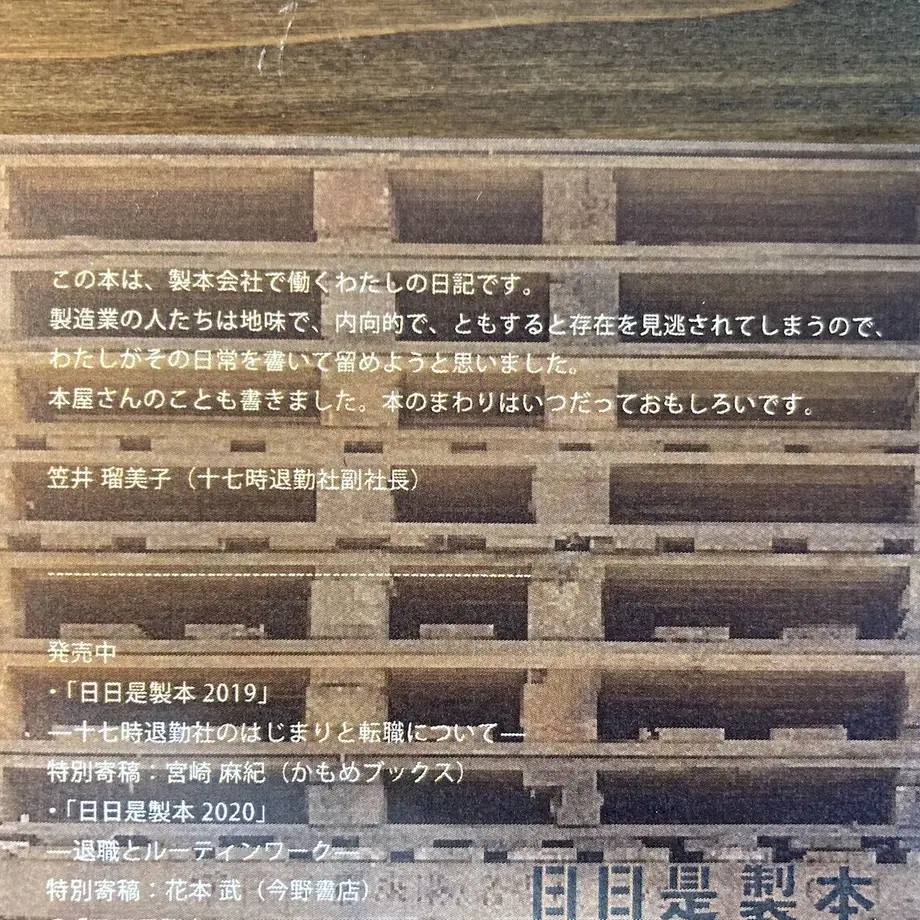 この本は、製本会社で働くわたしの日記です。
製造業の人たちは地味で、内向的で、ともすると存在を見逃されてしまうので、
わたしがその日常を書いて留めようと思いました。
本屋さんのことも書きました。本のまわりはいつだっておもしろいです。
笠井 瑠美子（十七時退勤社副社長）
発売中
・「日日是製本 2019」
―十七時退勤社のはじまりと転職について―
特別寄稿：宮崎 麻紀（かもめブックス）
・「日日是製本 2020」
―退職とルーティンワーク―
特別寄稿：花本 武（今野書店）
日日是製本